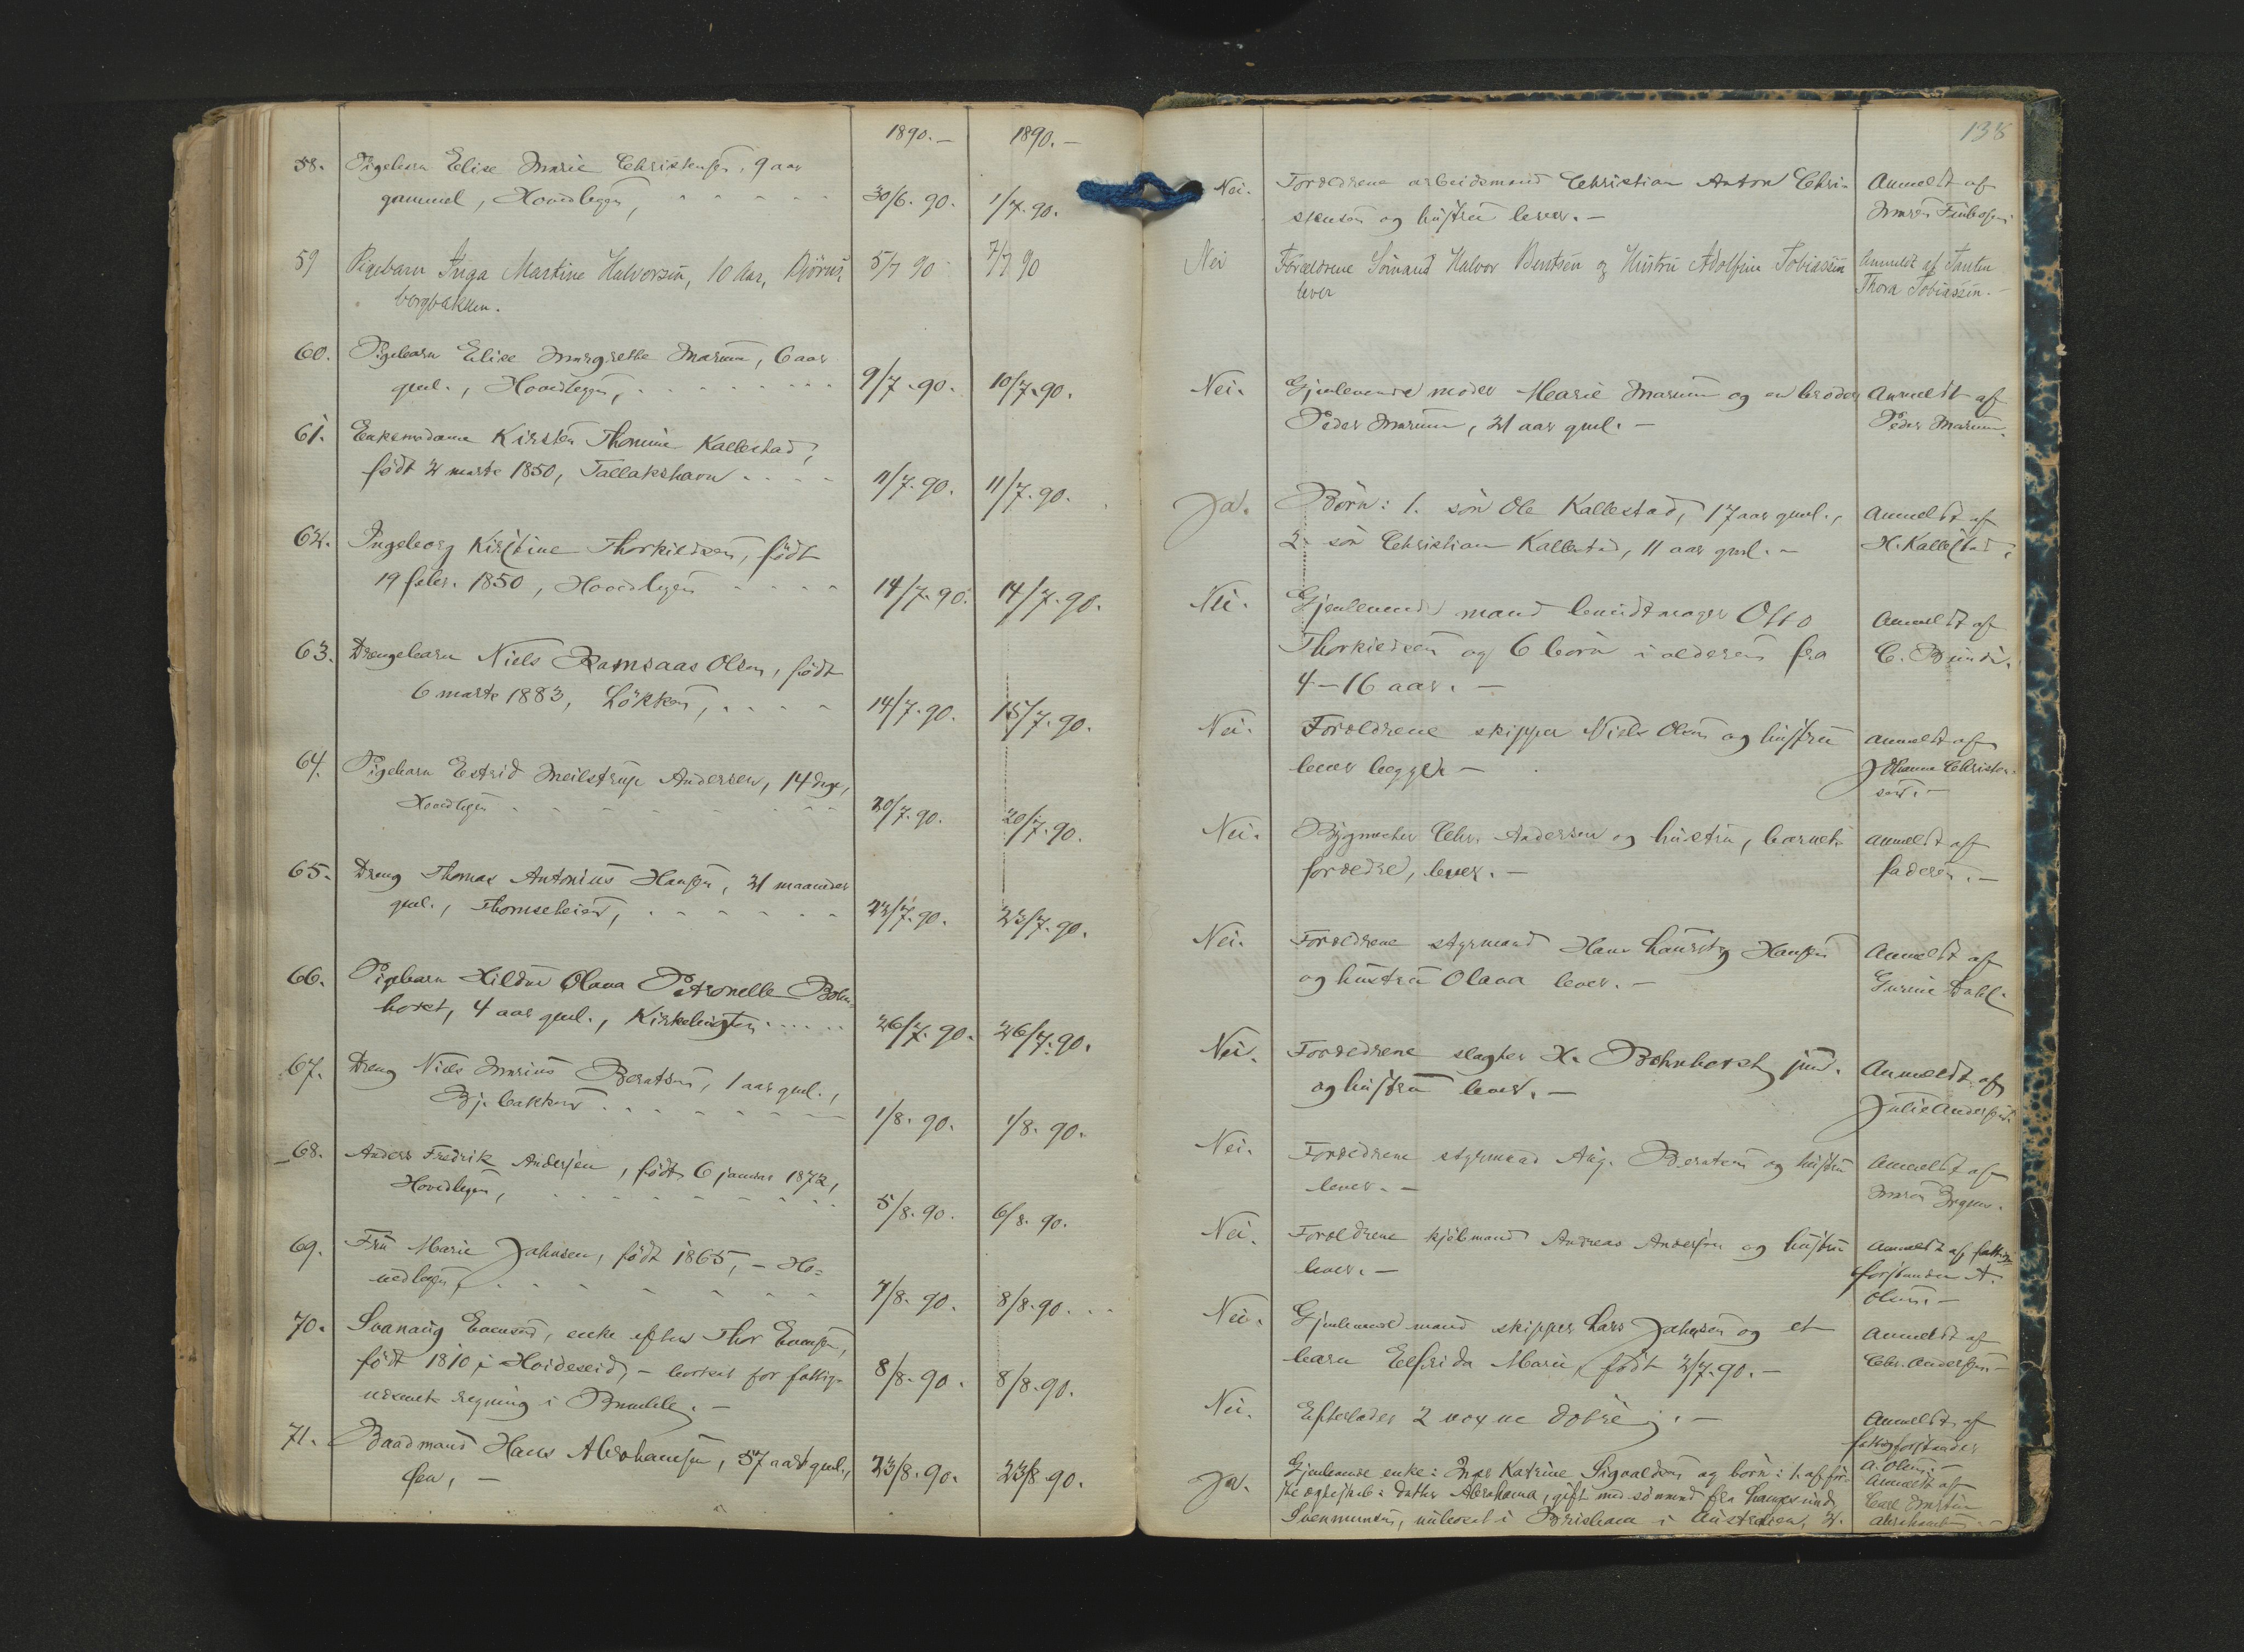 1890.— 1890.—
138
58. Pigebarn Elise Marie Christensen, 9 aar
gammel, Hovedlegen, 30/6. 90. 1/7. 90.
Nei. Forældrene arbeidsmand Christian Anton Chri-
stensen og hustru lever.—
Anmeldt af
59 Pigebarn Inga Martine Halvorsen, 10 Aar, Björns
bergbakken. 5/7 90 7/7 90
Nei Forældrene Sömand Halvor Berntsen og Hustru Adolfine Tobiassen
lever
Anmeldt af Tanten
Thora Tobiassen.—
60. Pigebarn Elise Margrethe Marum, 6 aar
gml., Hovedlegen, 9/7. 90. 10/7. 90.
Nei. Gjenlevende moder Marie Marum og en broder
Peder Marum, 21 aar gml.—
Anmeldt af
Peder Marum.
61. Enkemadame Kirsten Thomine Kallestad,
født 2 marts 1850, Tallakshavn 11/7. 90. 11/7. 90.
Ja. Börn: 1. sön Ole Kallestad, 17 aar gml.,
2. sön Christian Kallestad, 11 aar gml.—
Anmeldt af
H. Kallestad.
62. Ingeborg Kirstine Thorkildsen, født
19 febr. 1850, Hovedlegen 14/7. 90. 14/7. 90.
Nei. Gjenlevende mand buntmager Otto
Thorkildsen og 6 börn i alderen fra
4—16 aar.—
Anmeldt af
63. Drengebarn Niels Ramsaas Olsen, født
6 marts 1883, Lökken, 14/7. 90. 15/7. 90.
Nei. Forældrene skipper Niels Olsen og hustru
lever begge.—
Anmeldt af
Johanna Christen-
sen.—
64. Pigebarn Estrid Meilstrup Andersen, 14 dage,
Hovedlegen 20/7. 90. 20/7. 90.
Nei. Bygmester Chr. Andersen og hustru, barnets
forældre, lever.—
Anmeldt af
faderen.—
65. Dreng Thomas Antonius Hansen, 21 maaneder
gml., Thomseheien, 23/7. 90. 23/7. 90.
Nei. Forældrene styrmand Hans Lauritz Hansen
og hustru Olava lever.—
Anmeldt af
Gurine Dahl.
66. Pigebarn Hildur Olava Petronelle Bohn-
horst, 4 aar gml., Kirkebugten 26/7. 90. 26/7. 90.
Nei. Forældrene slagter H. Bohnhorst jun.
og hustru lever.—
Anmeldt af
Julie Andersen.
67. Dreng Niels Marius Berntsen, 1 aar gml.,
Bj. bakken 1/8. 90. 1/8. 90.
Nei. Forældrene styrmand Aug. Berntsen og hustru
lever.—
Anmeldt af
68. Anders Fredrik Andersen, født 6 januar 1872,
Hovedlegen, 5/8. 90. 6/8. 90.
Nei. Forældrene kjöbmand Andreas Andersen og hustru
lever.—
Anmeldt af fattig-
forstander A.
Olsen.—
69. Fru Marie Jahnsen, født 1865,— Ho-
vedlegen, 7/8. 90. 8/8. 90.
Nei. Gjenlevende mand skipper Lars Jahnsen og et
barn Elfrida Marie, født 2/7. 90.—
Anmeldt af
Chr. Andersen—
70. Svanaug Evensen, enke efter Thor Evensen,
født 1810 i Hvideseid,— bortsat for fattig-
væsenets regning i Bamble.— 8/8. 90. 8/8. 90.
Nei. Efterlader 2 voxne dötre.—
Anmeldt af
fattigforstander
A. Olsen.—
71. Baadmand Hans Abrahamsen, 57 aar gml., 23/8. 90. 23/8. 90.
Ja. Gjenlevende enke: Inger Katrine Sigvaldsen og börn: 1. af för-
ste ægteskab: datter Abrahama, gift med sömand fra Langesund
Svenmunsen, nu bosat i Brisbane i Australien, 2.
Anmeldt af
Carl Martin
Abrahamsen